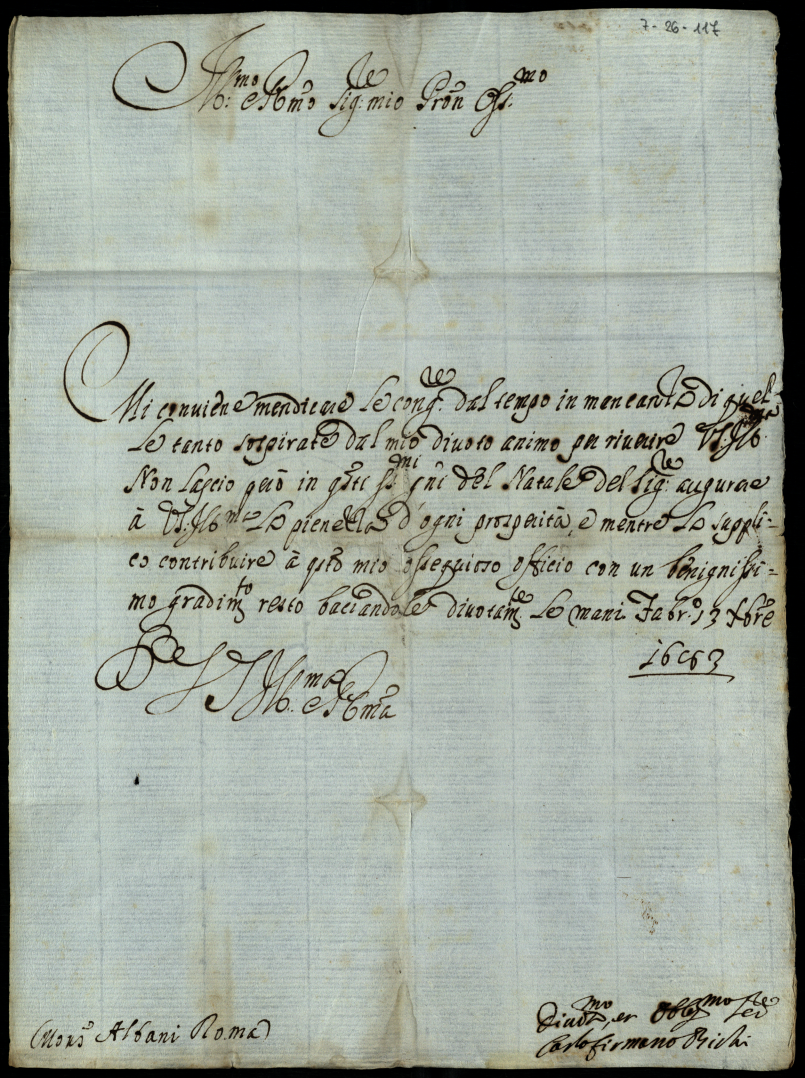 7-26-117
Ill:mo e Rmo Sig:re mio Pron Oss:mo
Mi conviene mendicare le cong:re dal tempo in mancanza di quel-
le tanto sospirate dal mio divoto animo per riverire VS. Ill:ma
Non lascio però in qsti ss:mi gni del Natale del Sig:re augurare
à VS. Ill:ma le pienezza d'ogni prosperità, e mentre la suppli=
co contribuire à qsto mio ossequioso officio con un benignissi=
mo gradim:to resto baciandole divotam:te le mani. Fabr:o 13 Xbre
1663
Di VS Ill:ma e Rma
Mons:r Albani Roma
Divot:mo, et Obblig:mo Ser:re
Carlo Firmano Bichi